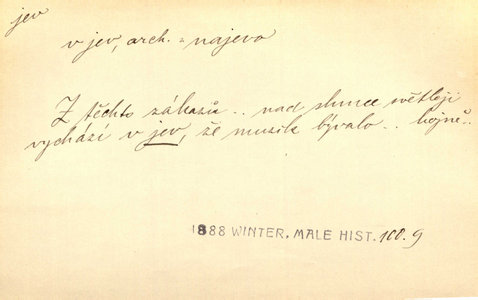 jev
v jev, arch. = najevo
Z těchto zákazů .. nad slunce světleji
vychází v jev, že muzik bývalo .. hojně..
1888 WINTER, MALE HIST. 100.9